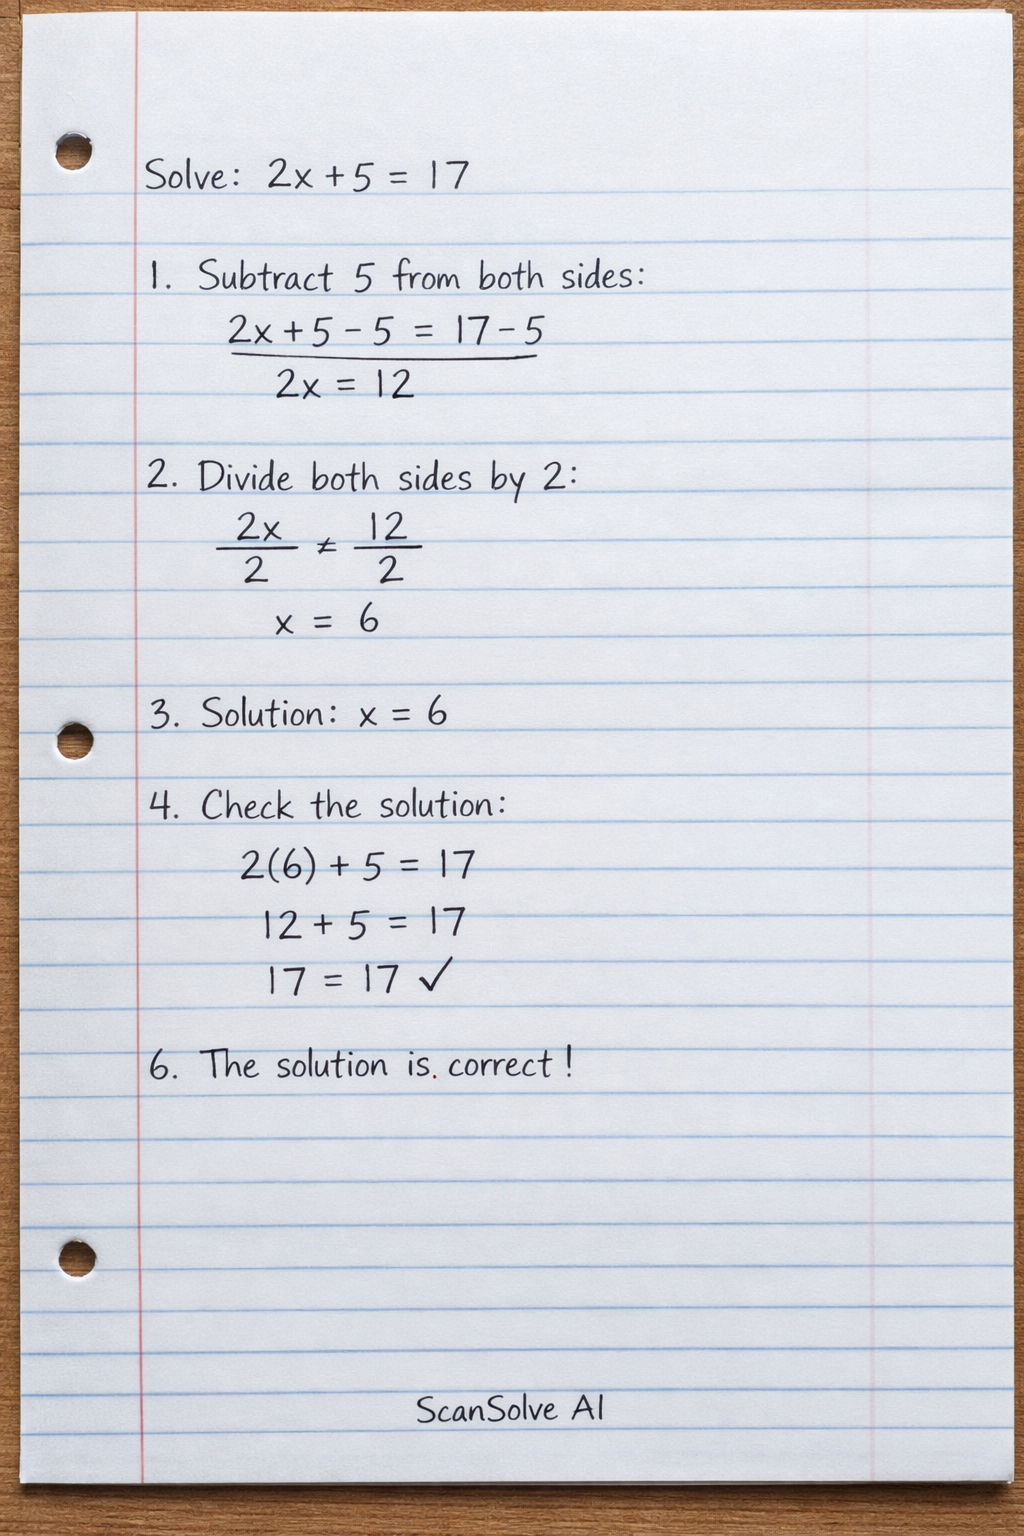 Solve: 2x + 5 = 17
1. Subtract 5 from both sides:
2x + 5 - 5 = 17 - 5
2x = 12
2. Divide both sides by 2:
2x/2 ≠ 12/2
x = 6
3. Solution: x = 6
4. Check the solution:
2(6) + 5 = 17
12 + 5 = 17
17 = 17 ✓
6. The solution is. correct!
ScanSolve AI